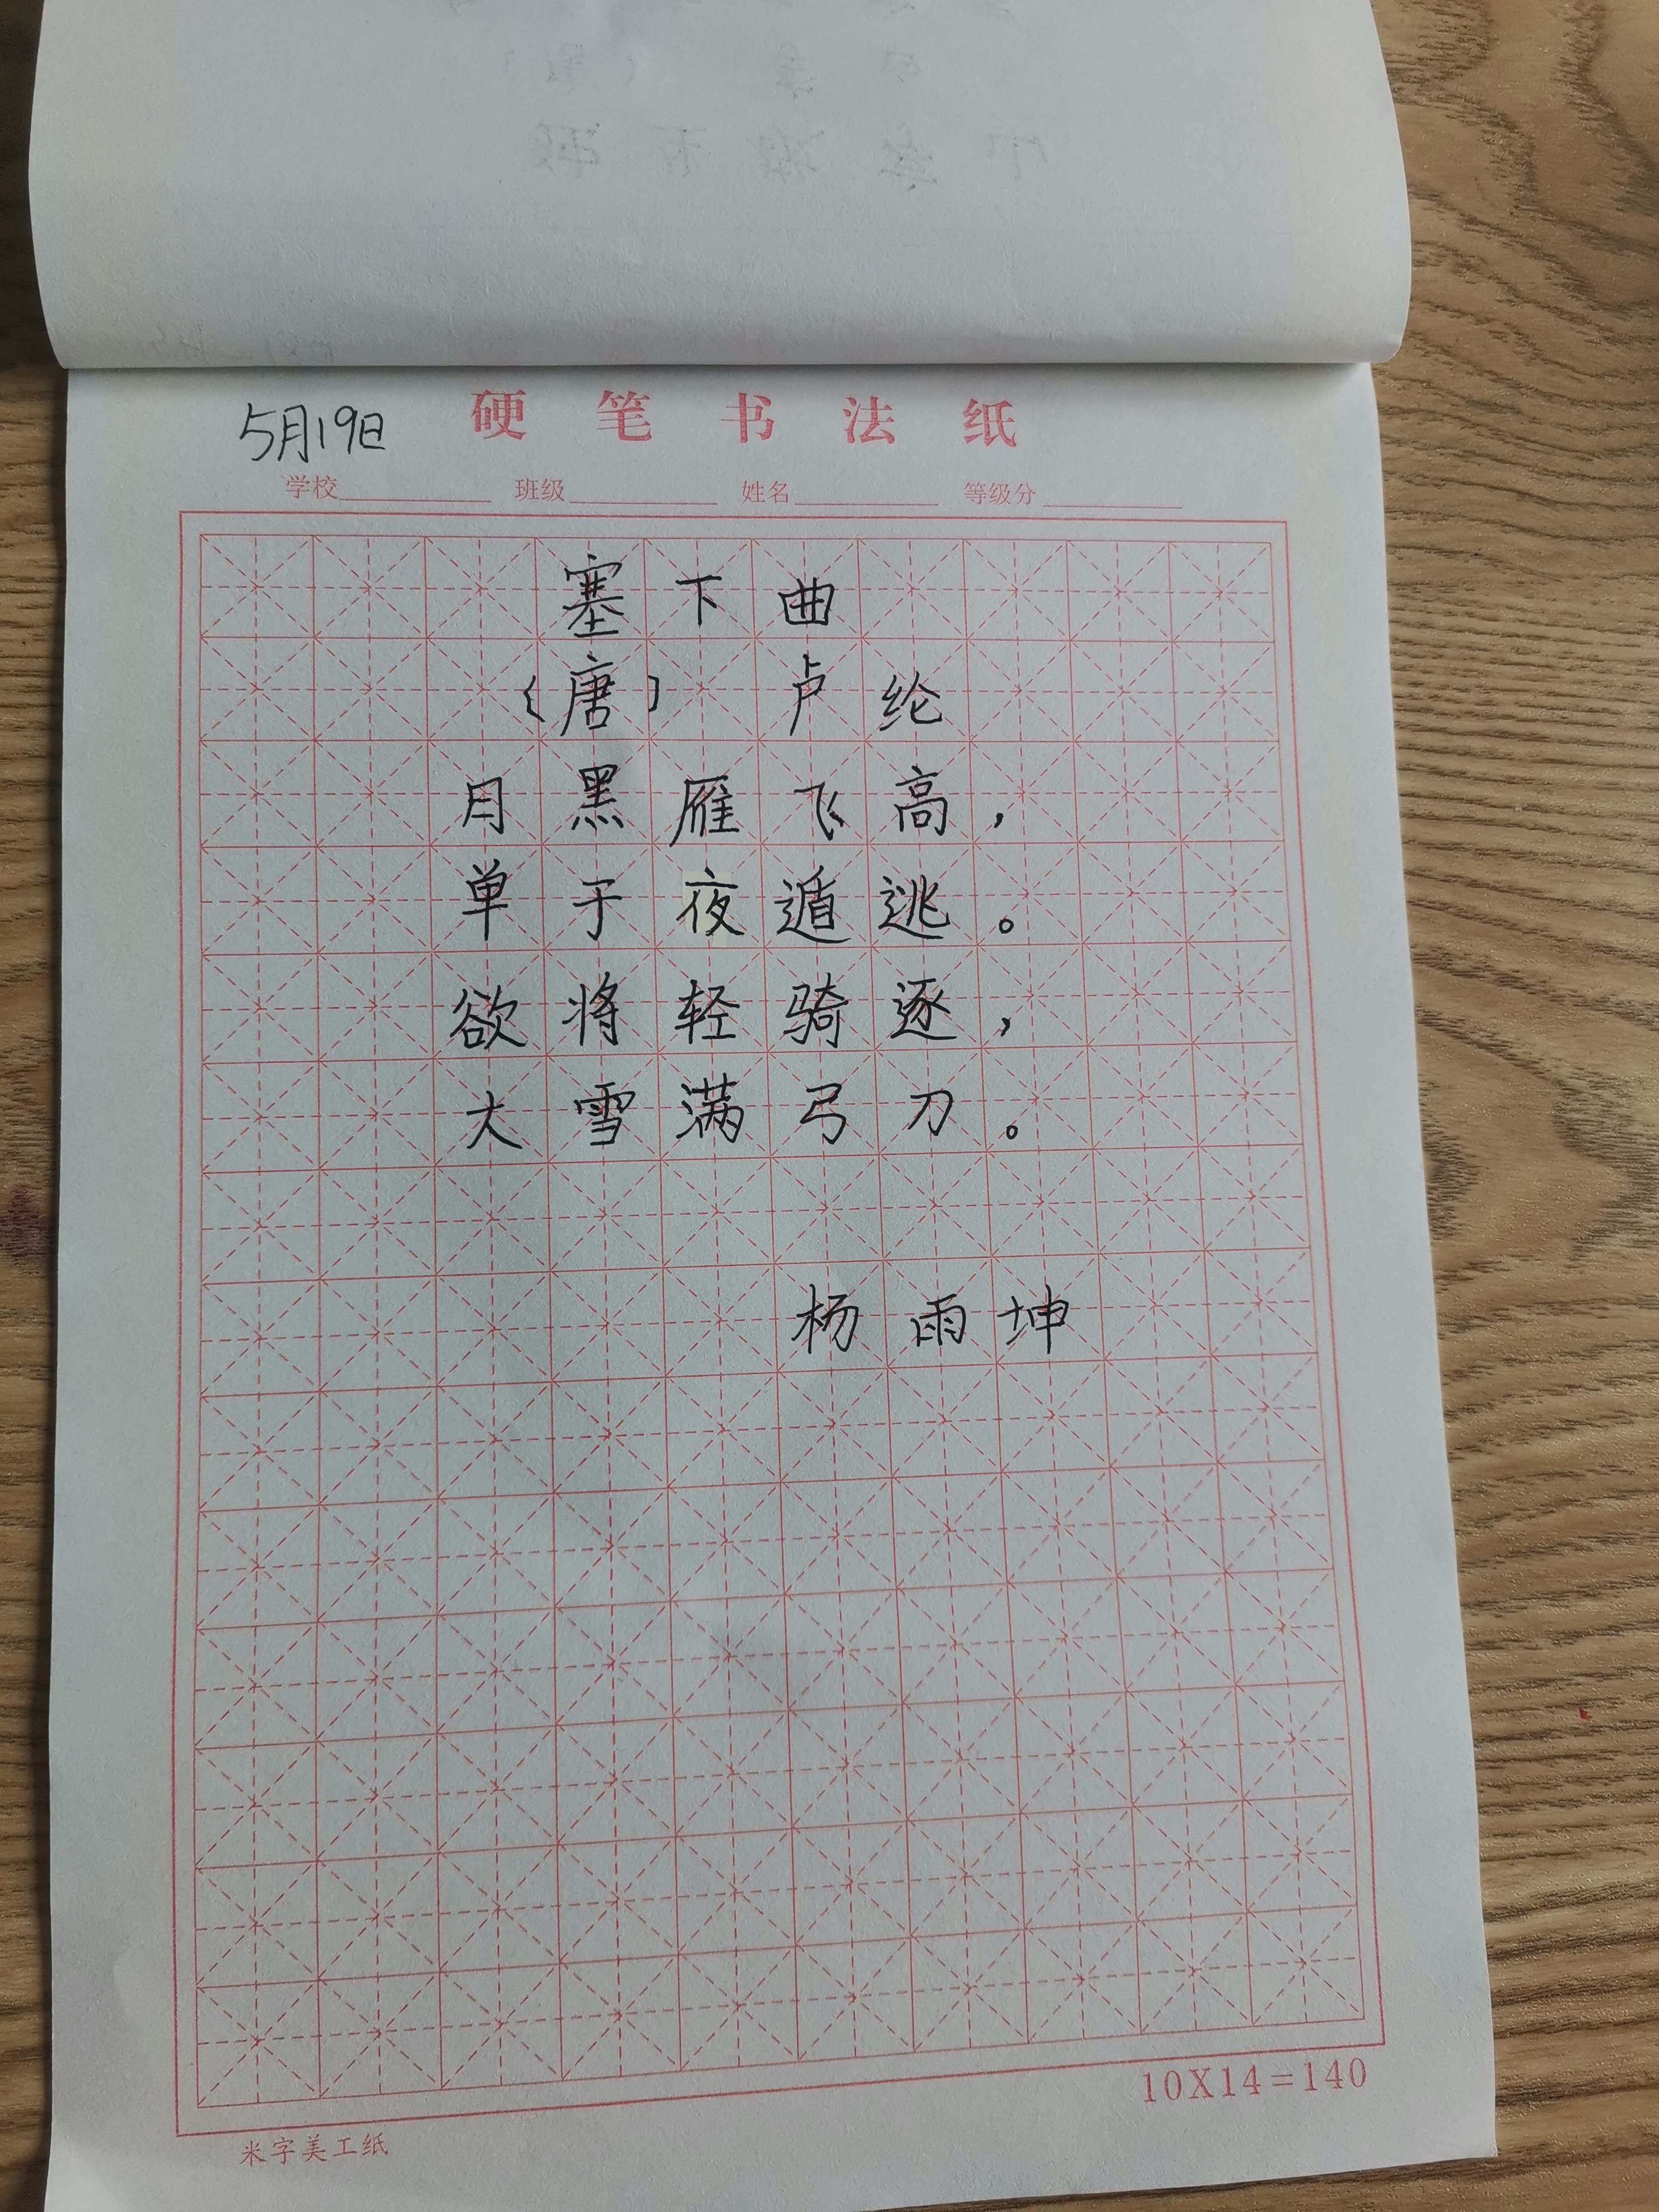 5月19日
硬笔书法纸
学校 班级 姓名 等级分
塞下曲
〔唐〕 卢纶
月黑雁飞高，
单于夜遁逃。
欲将轻骑逐，
大雪满弓刀。
杨雨坤
10X14=140
米字美工纸